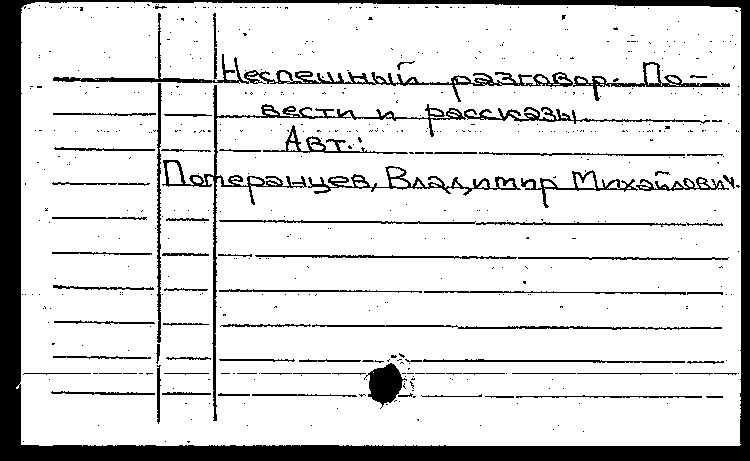 Неспешный разговор. По-
вести и рассказы
Авт.:
Потеранцев, Владимир Михайлович.